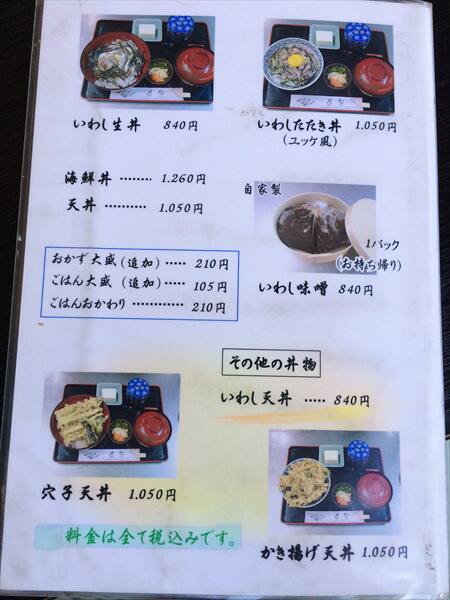 いわし生丼 840円
いわしたたき丼 1.050円
(ユッケ風)
海鮮丼 ········ 1.260円
天丼 ········ 1.050円
自家製
1パック
(お持ち帰り)
いわし味噌 840円
おかず大盛(追加)····· 210円
ごはん大盛(追加)····· 105円
ごはんおかわり ············ 210円
その他の丼物
いわし天丼 ····· 840円
穴子天丼 1.050円
かき揚げ天丼 1.050円
料金は全て税込みです。